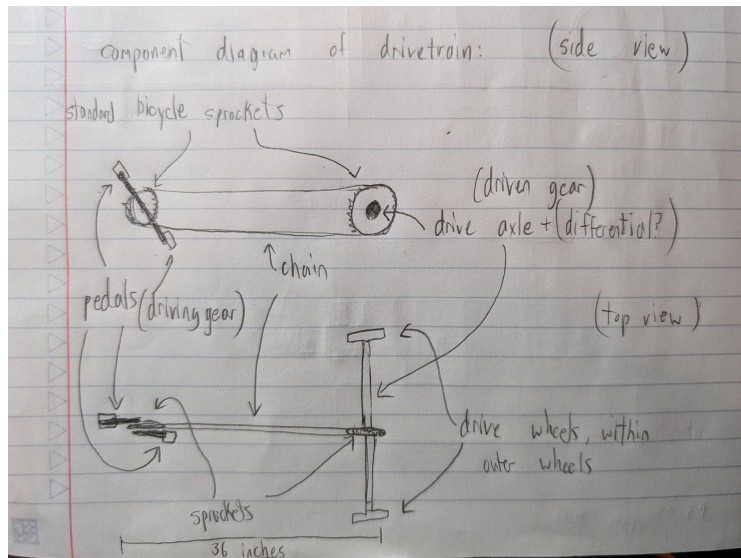 component diagram of drivetrain: (side view)
standard bicycle sprockets
(driven gear)
drive axle + (differential?)
chain
pedals (driving gear)
(top view)
drive wheels, within
outer wheels
sprockets
36 inches